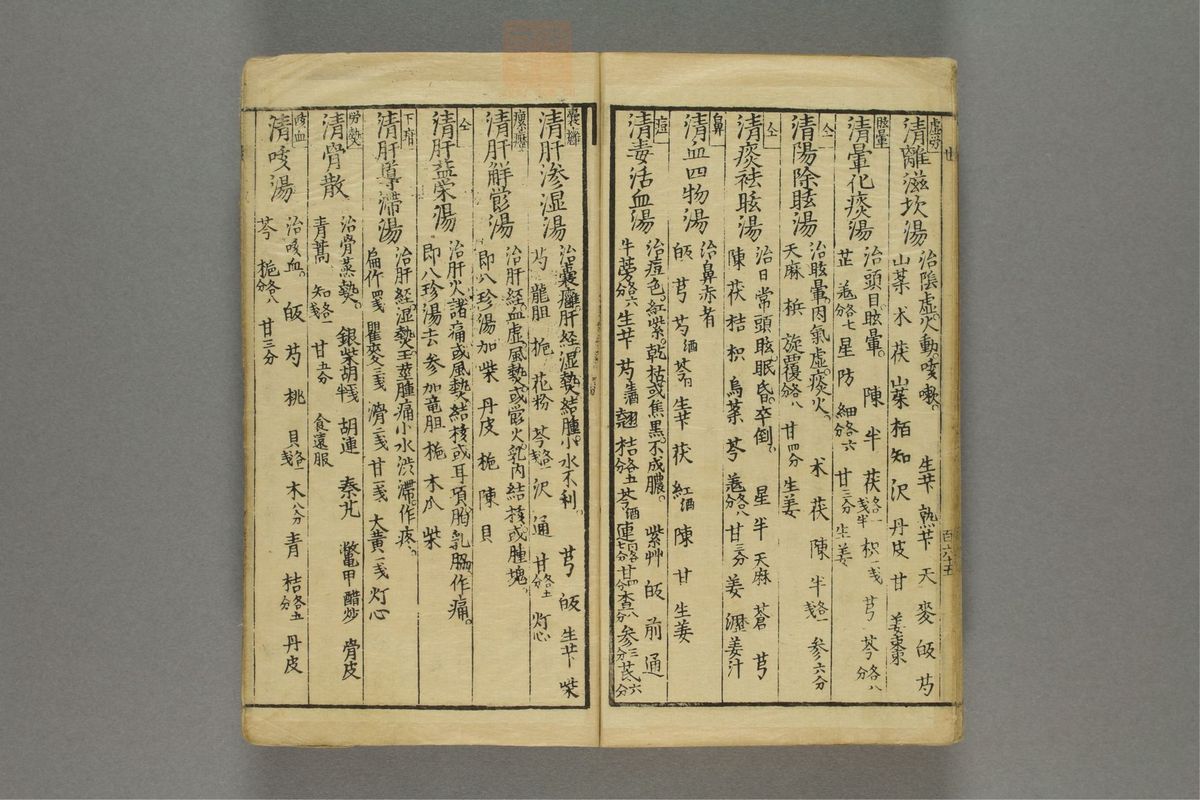 虚労
清離滋坎湯
治陰虚火動。咳嗽。 生苄 熟苄 天 麥 皈 芍
山薬 朮 茯 山茱 栢 知 沢 丹皮 甘 姜棗
眩暈
清暈化痰湯
治頭目眩暈。 陳 半 茯各一戔半 枳一戔 芎 芩各八分
芷 羗各七分 星 防 細各六分 甘三分 生姜
仝
清陽除眩湯
治眩暈。肉氣虚。痰火。 朮 茯 陳 半各一戔 参六分
天麻 梹 旋覆各八分 甘四分 生姜
仝
清痰祛眩湯
治日常頭眩。眠昏。卒倒。 星 半 天麻 蒼 芎
陳 茯 桔 枳 烏薬 芩 羗各八分 甘三分 姜 瀝 姜汁
鼻
清血四物湯
治鼻赤者
皈 芎 芍酒 芩 生苄 茯 紅酒 陳 甘 生姜
痘
清毒活血湯
治痘色。紅紫。乾枯或焦黒。不成膿。 紫艸 皈 前 通
牛蒡各六分 生苄 芍 翹 桔各五分 芩酒 連 甘 査八分 参三分 芪六分
百六十五
清肝渗湿湯
治嚢癰。肝経。湿熱。結腫。小水不利。 芎 皈 生苄 柴
芍 龍胆 梔 花粉 芩各一戔 沢 通 甘各五分 灯心
清肝解欝湯
治肝経。血虚。風熱。或欝火。乳内結核。或腫塊。
即八珍湯加 柴 丹皮 梔 陳 貝
仝
清肝益栄湯
治肝火。諸痛或風熱。結核。或耳。項。胸。乳。脇。作痛。
即八珍湯去 参 加 竜胆 梔 木瓜 柴
下疳
清肝導滞湯
治肝経。湿熱。玉莖腫痛。小水渋滞。作疼。
扁竹四戔 瞿麥三戔 滑二戔 甘一戔 大黄二戔 灯心
労熱
清骨散
治骨蒸熱。 銀柴胡半戔 胡連 秦艽 鼈甲醋炒 骨皮
青蒿 知各一戔 甘五分 食遠服
咳血
清咳湯
治咳血。 皈 芍 桃 貝各一戔 木八分 青 桔各五分 丹皮
芩 梔各八分 甘三分